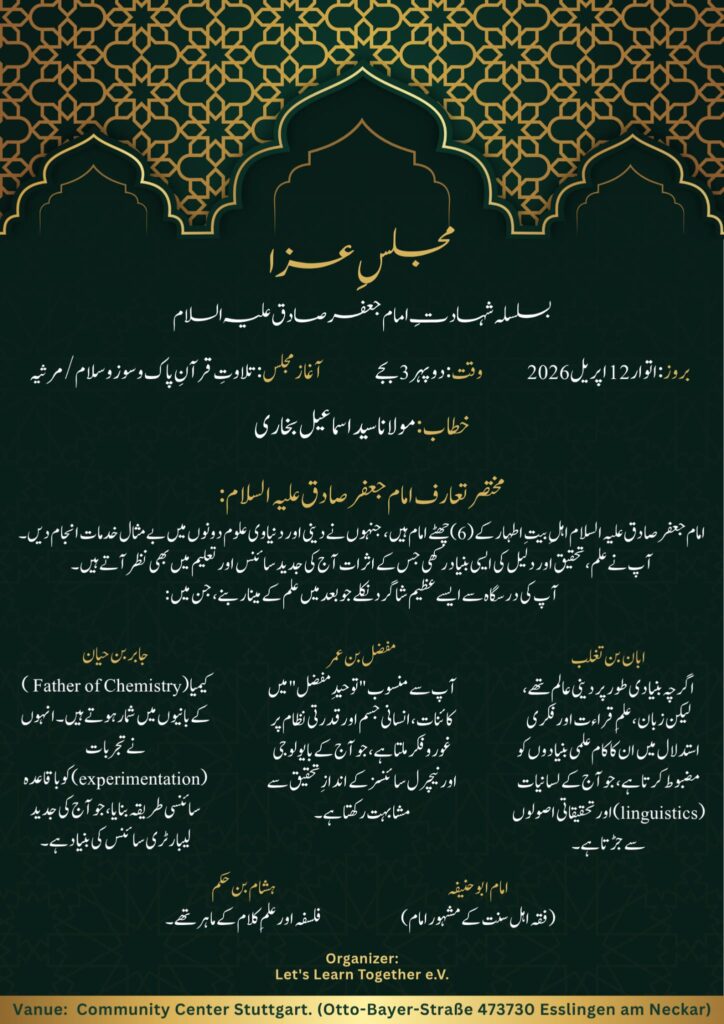 مجلسِ عزا
بسلسلہ شہادتِ امام جعفر صادق علیہ السلام
بروز: اتوار 12 اپریل 2026 وقت: دوپہر 3 بجے آغاز مجلس: تلاوتِ قرآنِ پاک و سوز و سلام / مرثیہ
خطاب: مولانا سید اسماعیل بخاری
مختصر تعارف امام جعفر صادق علیہ السلام:
امام جعفر صادق علیہ السلام اہل بیتِ اطہار کے (6) چھٹے امام ہیں، جنہوں نے دینی اور دنیاوی علوم دونوں میں بے مثال خدمات انجام دیں۔
آپ نے علم، تحقیق اور دلیل کی ایسی بنیاد رکھی جس کے اثرات آج کی جدید سائنس اور تعلیم میں بھی نظر آتے ہیں۔
آپ کی درسگاہ سے ایسے عظیم شاگرد نکلے جو بعد میں علم کے مینار بنے، جن میں:
ابان بن تغلب
اگرچہ بنیادی طور پر دینی عالم تھے،
لیکن زبان، علمِ قراءت اور فکری
استدلال میں ان کا کام علمی بنیادوں کو
مضبوط کرتا ہے، جو آج کے لسانیات
(linguistics) اور تحقیقاتی اصولوں
سے جڑتا ہے۔
مفضل بن عمر
آپ سے منسوب "توحیدِ مفضل" میں
کائنات، انسانی جسم اور قدرتی نظام پر
غور و فکر ملتا ہے، جو آج کے بایولوجی
اور نیچرل سائنسز کے اندازِ تحقیق سے
مشابہت رکھتا ہے۔
جابر بن حیان
کیمیا (Father of Chemistry )
کے بانیوں میں شمار ہوتے ہیں۔ انہوں
نے تجربات
(experimentation) کو باقاعدہ
سائنسی طریقہ بنایا، جو آج کی جدید
لیبارٹری سائنس کی بنیاد ہے۔
امام ابو حنیفہ
(فقہ اہل سنت کے مشہور امام)
ہشام بن حکم
فلسفہ اور علمِ کلام کے ماہر تھے۔
Organizer:
Let's Learn Together e.V.
Vanue: Community Center Stuttgart. (Otto-Bayer-Straße 473730 Esslingen am Neckar)